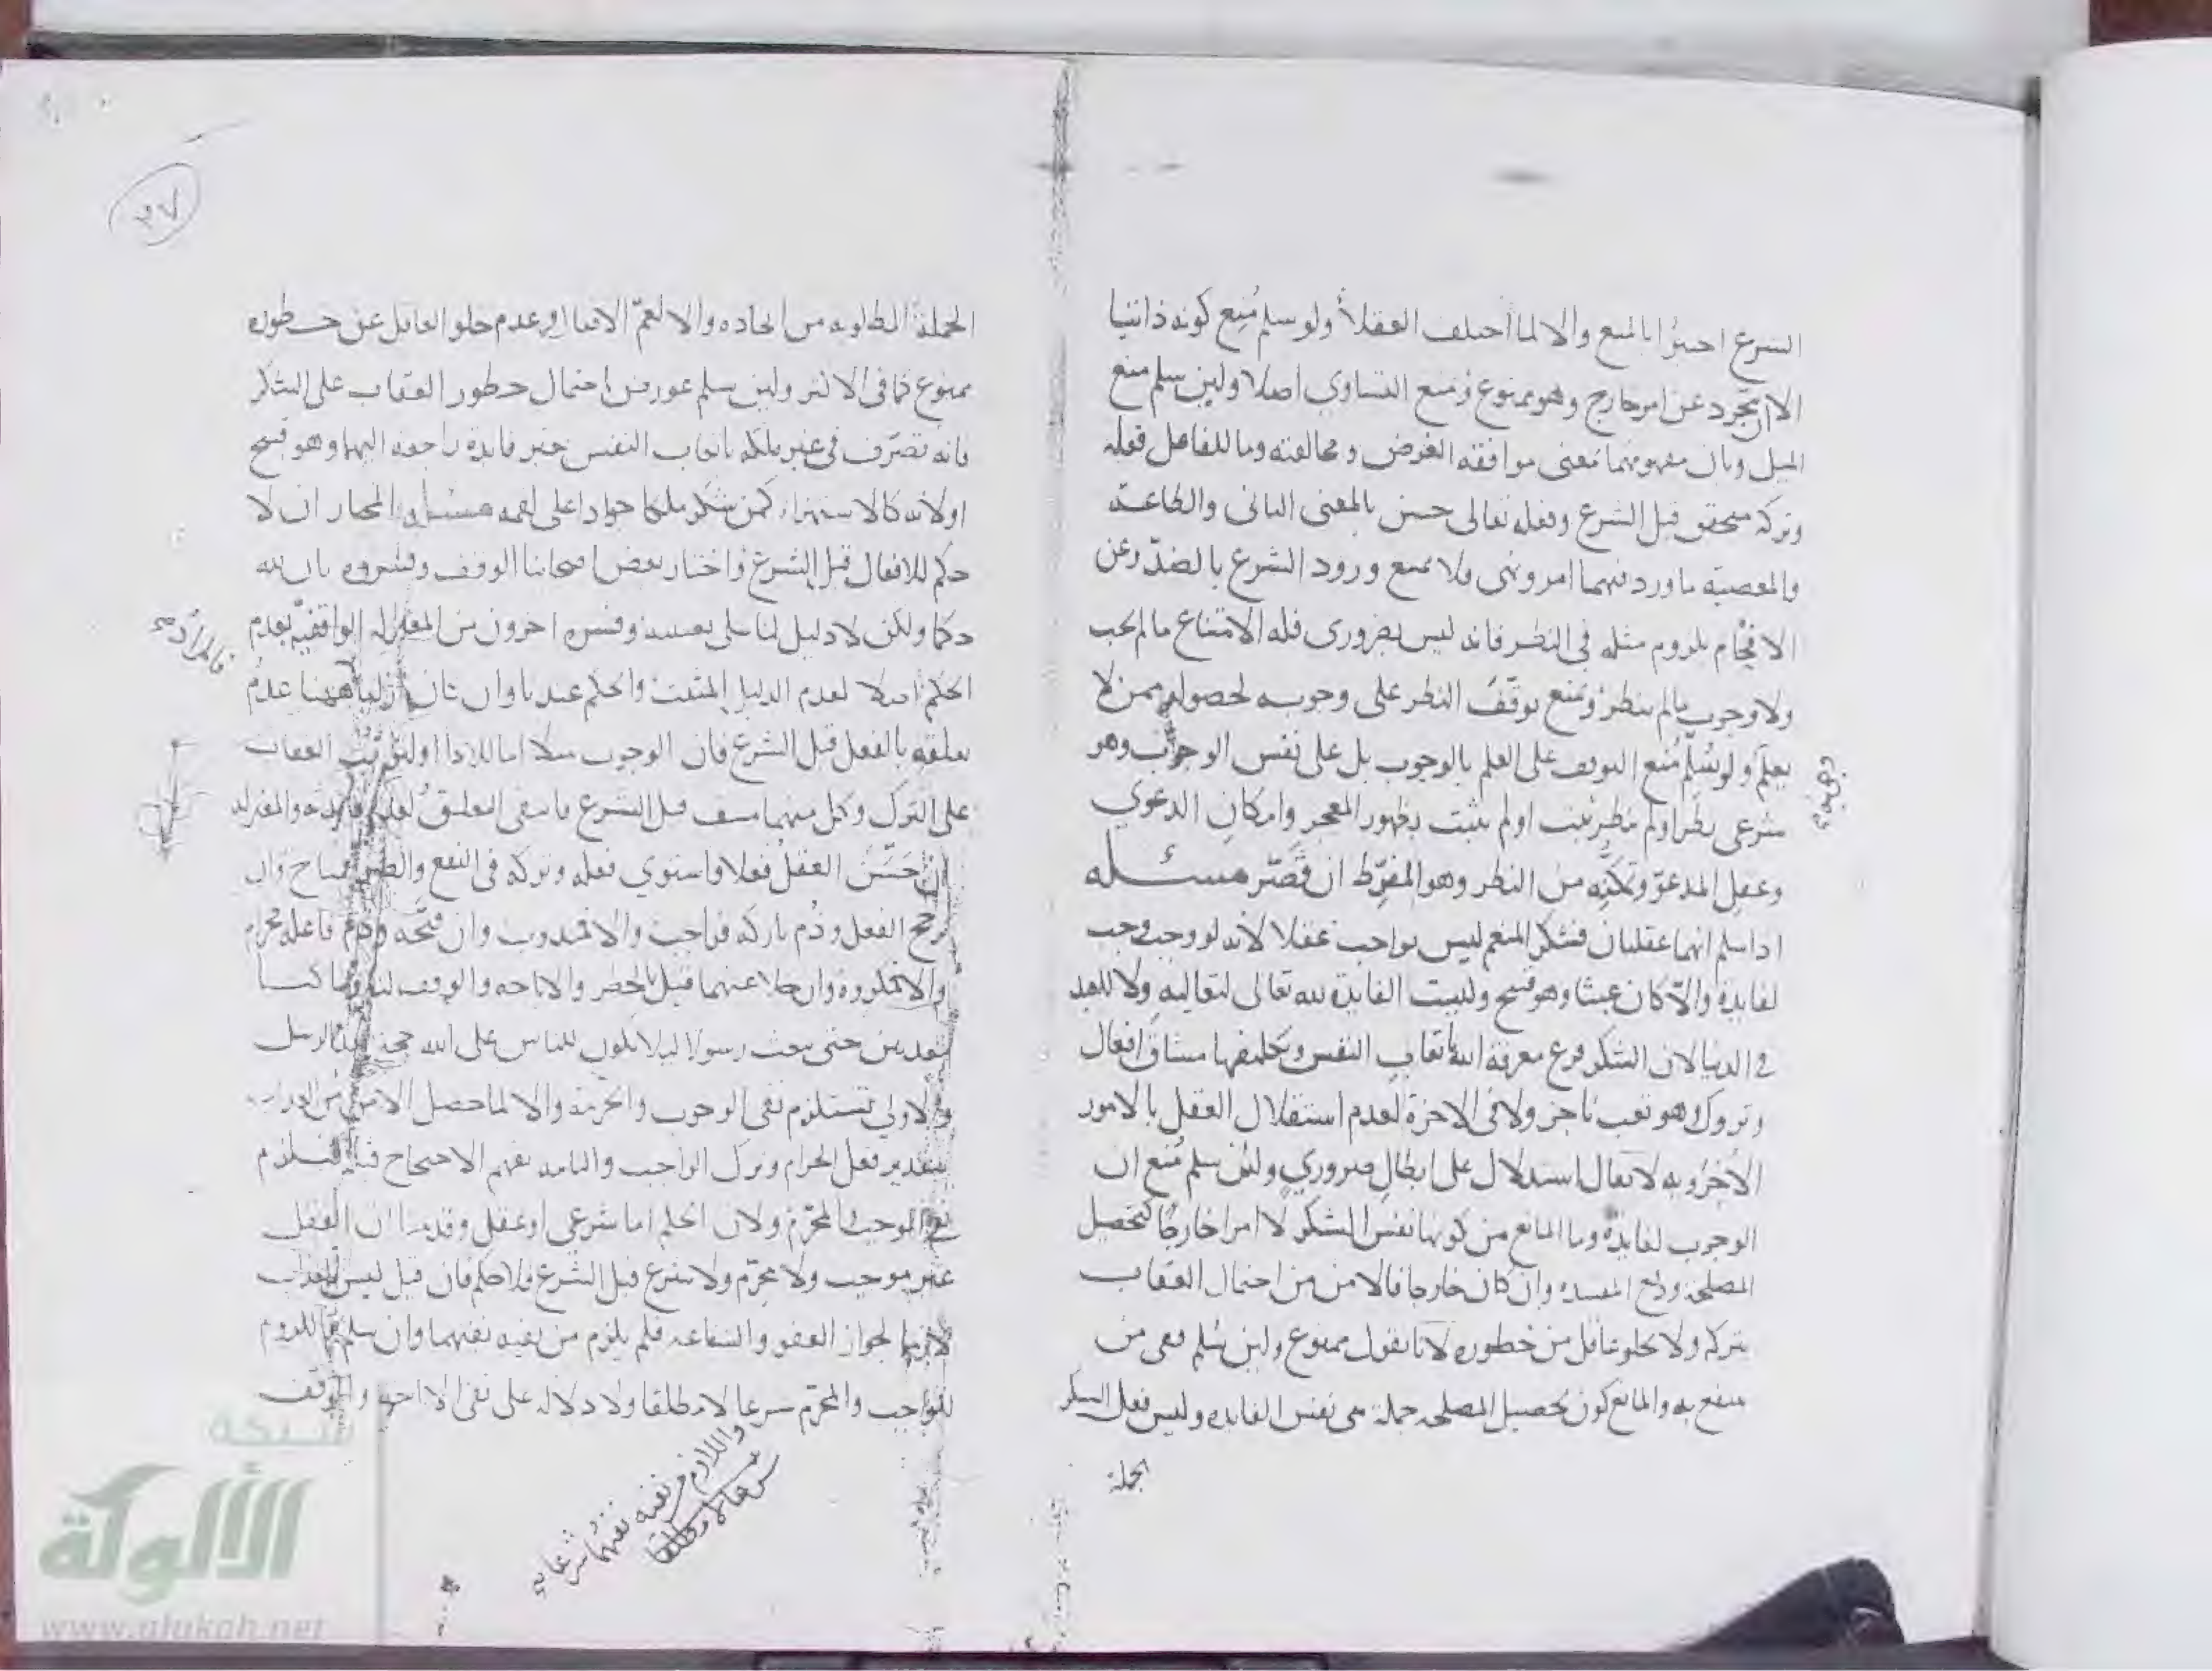 الشرع اجيز بالمنع والا لما اختلف العقلا ولو سلم مُنِع كونه ذاتيا
الا ان تجرد عن امر خارج وهو ممنوع ومنع التساوي اصلا ولين سلم منع
الميل وبان مفهومهما بمعنى موافقه الغرض ومخالفته وما للفاعل فعله
وتركه متحقق قبل الشرع وفعله تعالى حسن بالمعنى الثانى والطاعه
والمعصيه ما ورد فيهما امر ونهى ولا يمنع ورود الشرع بالضدّ وعن
الافحام بلزوم مثله في النظر فانه ليس بضرورى فله الامتناع ما لم يجب
ولا وجوب ما لم ينظر ومنع توقّف النظر على وجوبه لحصوله ممن لا
يعلم ولو سُلّم مُنع التوقف على العلم بالوجوب بل على نفس الوجوب وهو
شرعى نظر او لم ينظر ثبت او لم يثبت بظهور المعجز وامكان الدعوي
وعقل المدعوّ وتمكّنه من النظر وهو المفرّط ان قصّر مسئله
اذا سلم انهما عقليان فشكر المنعم ليس بواجب عقلا لانه لو وجب وجب
لفايدة والّا كان عبثا وهو قبيح وليست الفايدة لله تعالى لتعاليه ولا للعبد
في الدنيا لان الشكر فرع معرفة الله باتعاب النفس وتكليفها مشاق افعال
وتروك وهو تعب ناجز ولا فى الاخرة لعدم استقلال العقل بالامور
الاخرويه لا يقال استدلال على ابطال ضروري ولئن سلم مُنع ان
الوجوب لفايدة وما المانع من كونها نفس الشكر لا امرا خارجا كتحصيل
المصلحة ودفع المفسده وان كان خارجا فالامن من احتمال العقاب
بتركه ولا يخلو عاقل من خطوره لانا نقول ممنوع ولين سُلم فهى من
ينتفع به والمانع كون تحصيل المصلحه جملة هى نفس الفايده وليس فعل الشكر
الجملة
٣٧
الجملة المطلوبه من ايجاده والا لعمّ الافعال وعدم خلو العاقل عن خطوره
ممنوع كما فى الاكثر ولين سلم عورض باحتمال خطور العقاب على الشكر
فانه تصرّف فى غير ملكه باتعاب النفس بغير فايدة راجعه اليها وهو قبيح
اولانه كالاستهزاء كمن شكر ملكا جوادا على لقمه مسئله المختار ان لا
حكم للافعال قبل الشرع واختار بعض اصحابنا الوقف وفسروه بان لله
حكما ولكن لا دليل لنا على تعيينه وفسره اخرون من المعتزله الواقفيه بعدم
الحكم اصلا لعدم الدليل المثبت والحكم عندنا وان كان ازليا ههنا عدمُ
تعلقه بالفعل قبل الشرع فان الوجوب مثلا اما للادا او لترتّب العقاب
على الترك وكل منهما منتف قبل الشرع فانتفى التعليق لعدم فايدته والمعتزله
ان حَسّن العقلُ فعلا فاستوي فعله وتركه فى النفع والضر فمباح وان
رجح الفعل وذُم تاركه فواجب والا فمندوب وان قبّحه وذم فاعله فحرام
والا فمكروه وان خلا عنهما قبل بالحظر والاباحه والوقف لنا وما كنا
معذبين حتى نبعث رسولا ليلا يكون للناس على الله حجة بعد الرسل
والاولى تستلزم نفى الوجوب والحرمة والا لما حصل الامن من العذاب
بتقدير فعل الحرام وترك الواجب والثانيه تفهم الاحتجاج قبله فيلزم
نفى الموجب والمحرّم ولان الحكم اما شرعى او عقلى وقد بينا ان العقل
غير موجب ولا محرّم ولا شرع قبل الشرع فلا حكم فان قيل ليس العذاب
لازما لجواز العفو والشفاعه فلم يلزم من نفيه نفيهما وان سلم فاللزوم
للواجب والمحرّم شرعا لا مطلقا ولا دلاله على نفى الاباحه والوقف
واللازم من نفيه نفيهما شرعا
شرعا لا مطلقا
شبكة
الألوكة
www.alukah.net